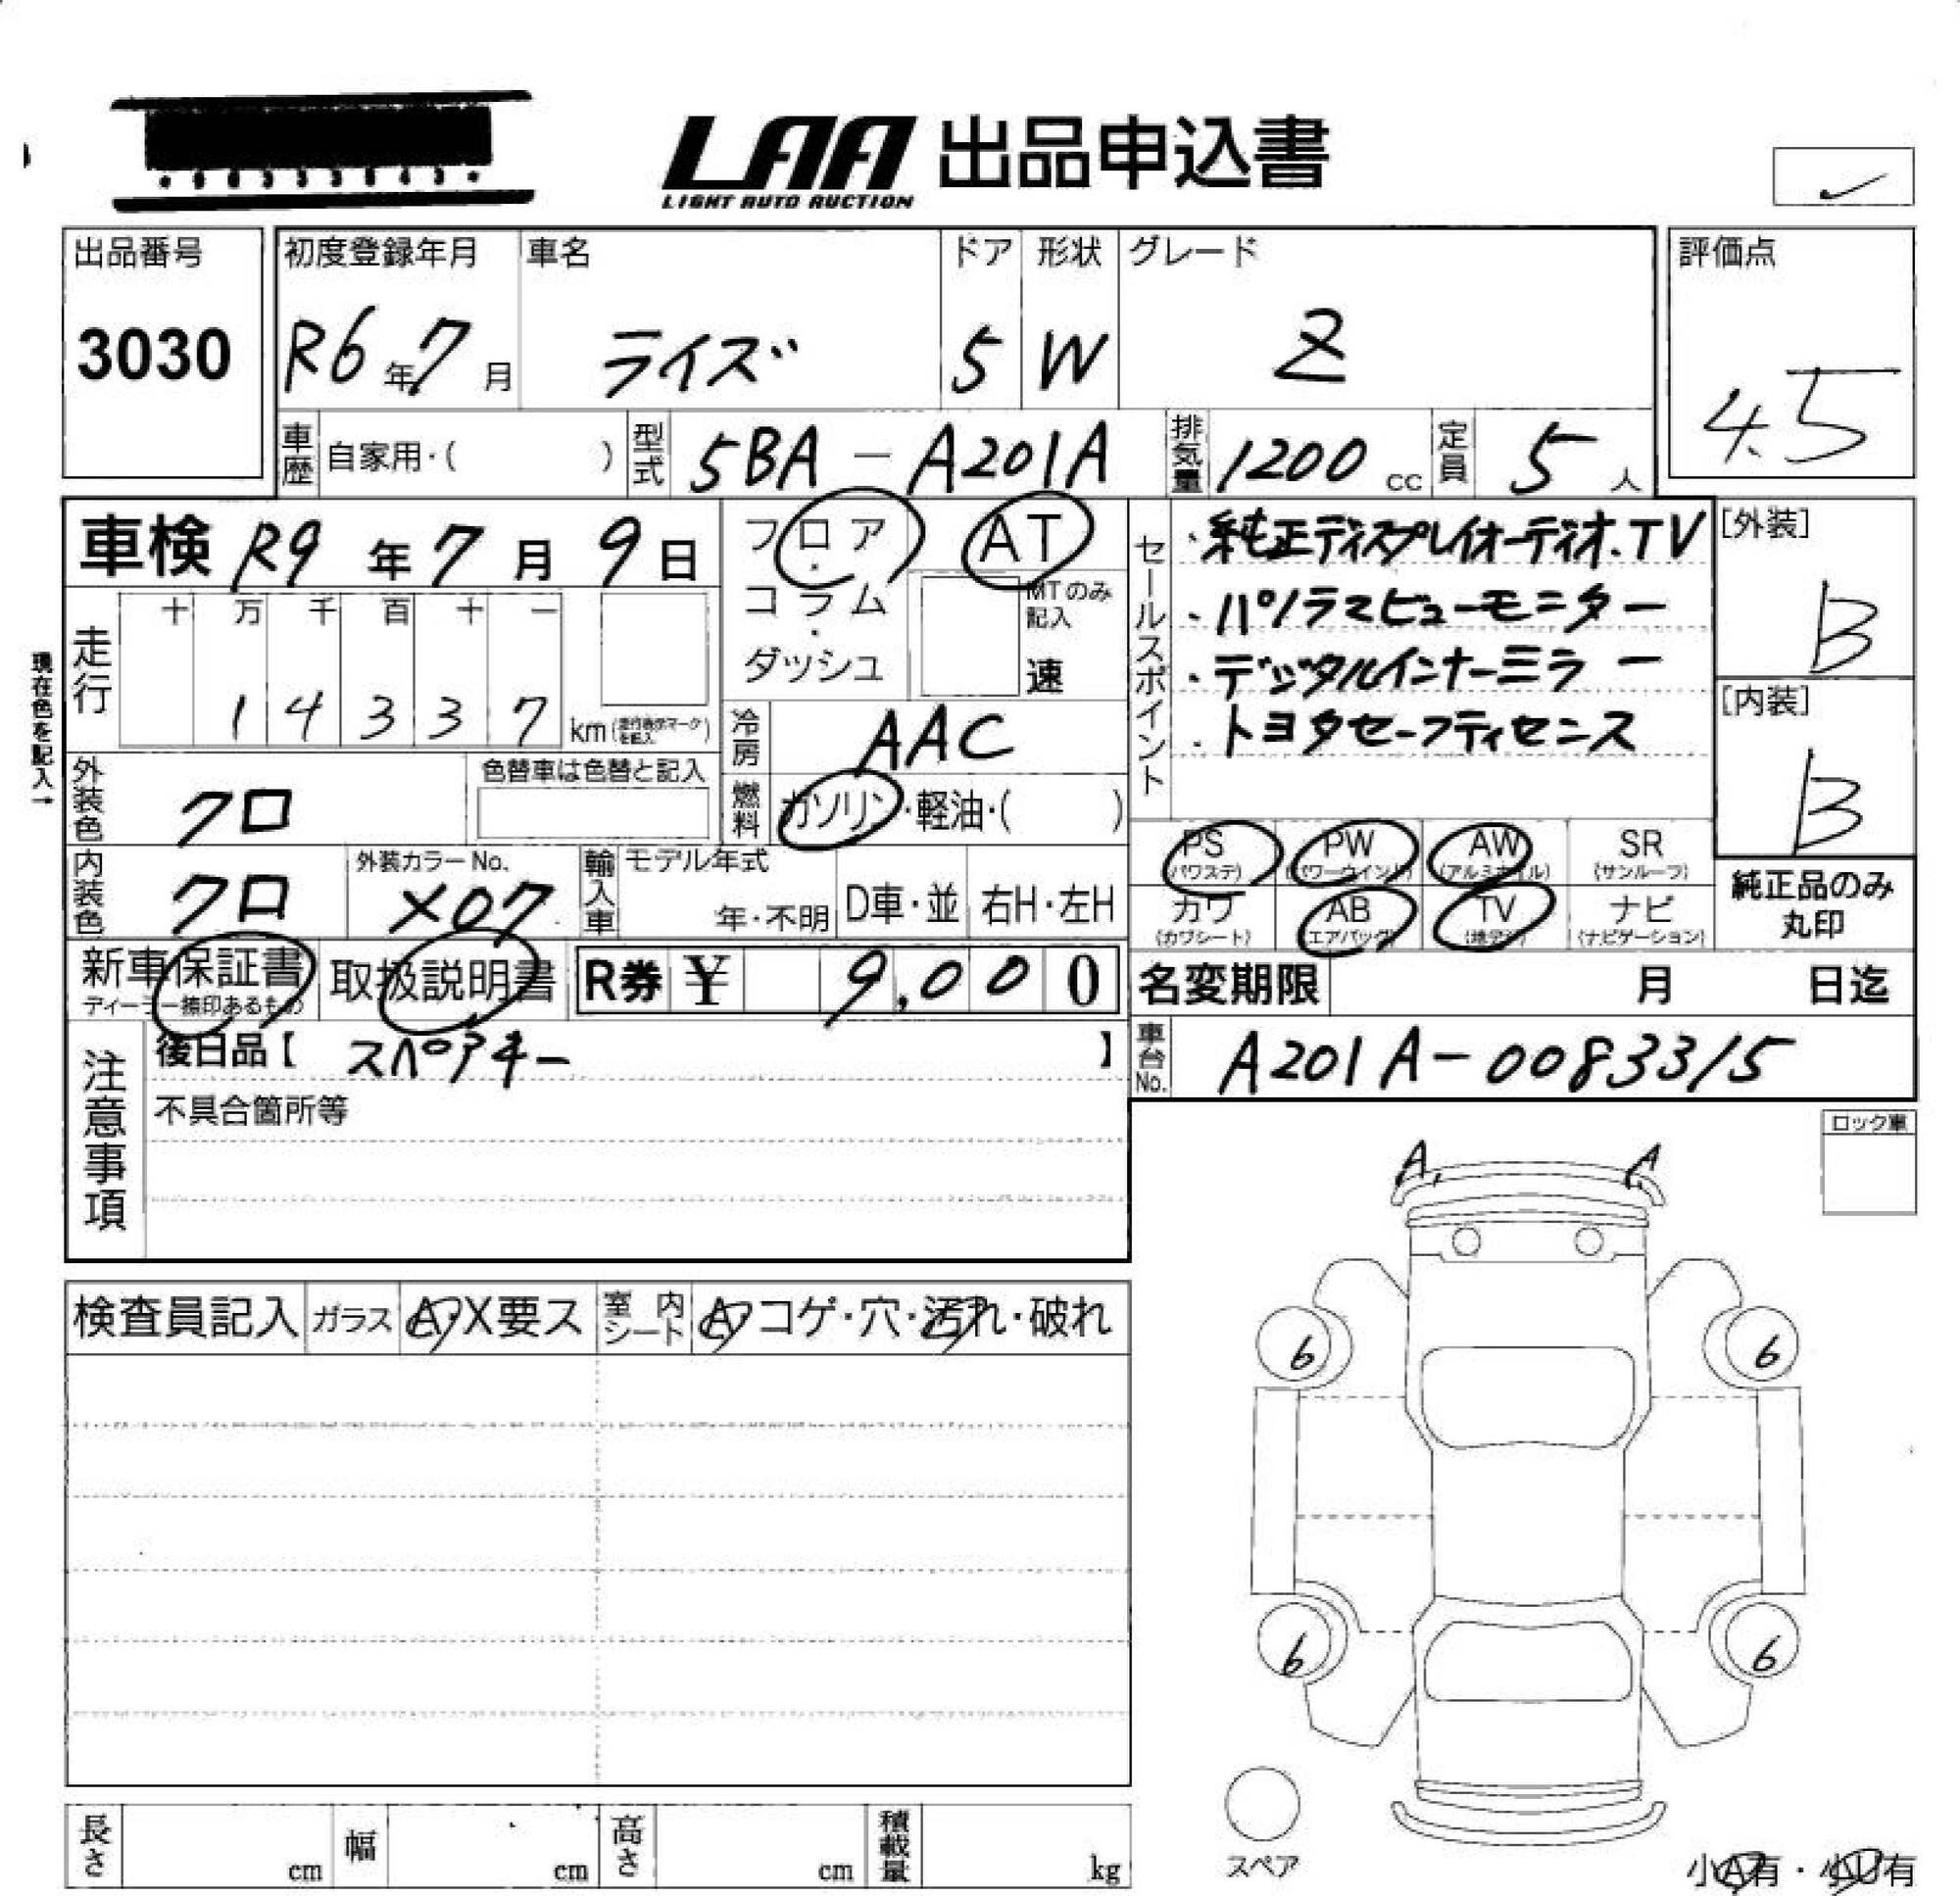 LAA 出品申込書
LIGHT AUTO AUCTION
出品番号
3030
初度登録年月
R6年7月
車名
ライズ
ドア
5
形状
W
グレード
Z
評価点
4.5
車歴 自家用・( )
型式 5BA-A201A
排気量 1200 cc
定員 5 人
車検 R9年7月9日
フロア・コラム・ダッシュ
AT
MTのみ記入
速
セールスポイント
・純正ディスプレイオーディオ.TV
・パノラマビューモニター
・デジタルインナーミラー
・トヨタセーフティセンス
[外装]
B
[内装]
B
現在色を記入→
走行
十 万 千 百 十 一
1 4 3 3 7 km
冷房 AAC
燃料 ガソリン・軽油・( )
外装色 クロ
色替車は色替と記入
内装色 クロ
外装カラーNo.
X07
輸入車
モデル年式
年・不明
D車・並
右H・左H
PS (パワステ)
PW (パワーウインド)
AW (アルミホイル)
SR (サンルーフ)
カワ (カワシート)
AB (エアバック)
TV
ナビ (ナビゲーション)
純正品のみ
丸印
新車保証書
ディーラー捺印あるもの
取扱説明書
R券 ¥ 9,000
名変期限 月 日迄
車台No. A201A-0083315
注意事項
後日品【 スペアキー 】
不具合箇所等
ロック車
A A
検査員記入
ガラス A・X要ス
室内シート A コゲ・穴・汚れ・破れ
6 6
6 6
スペア
長さ cm
幅 cm
高さ cm
積載量 kg
小A有・小U有